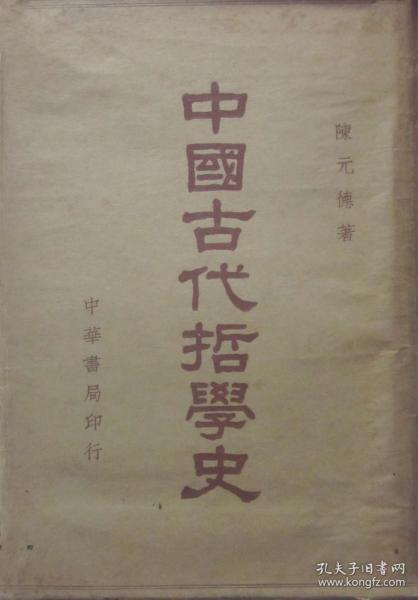 陳元德著
中國古代哲學史
中華書局印行
孔夫子旧书网
www.kongfz.com